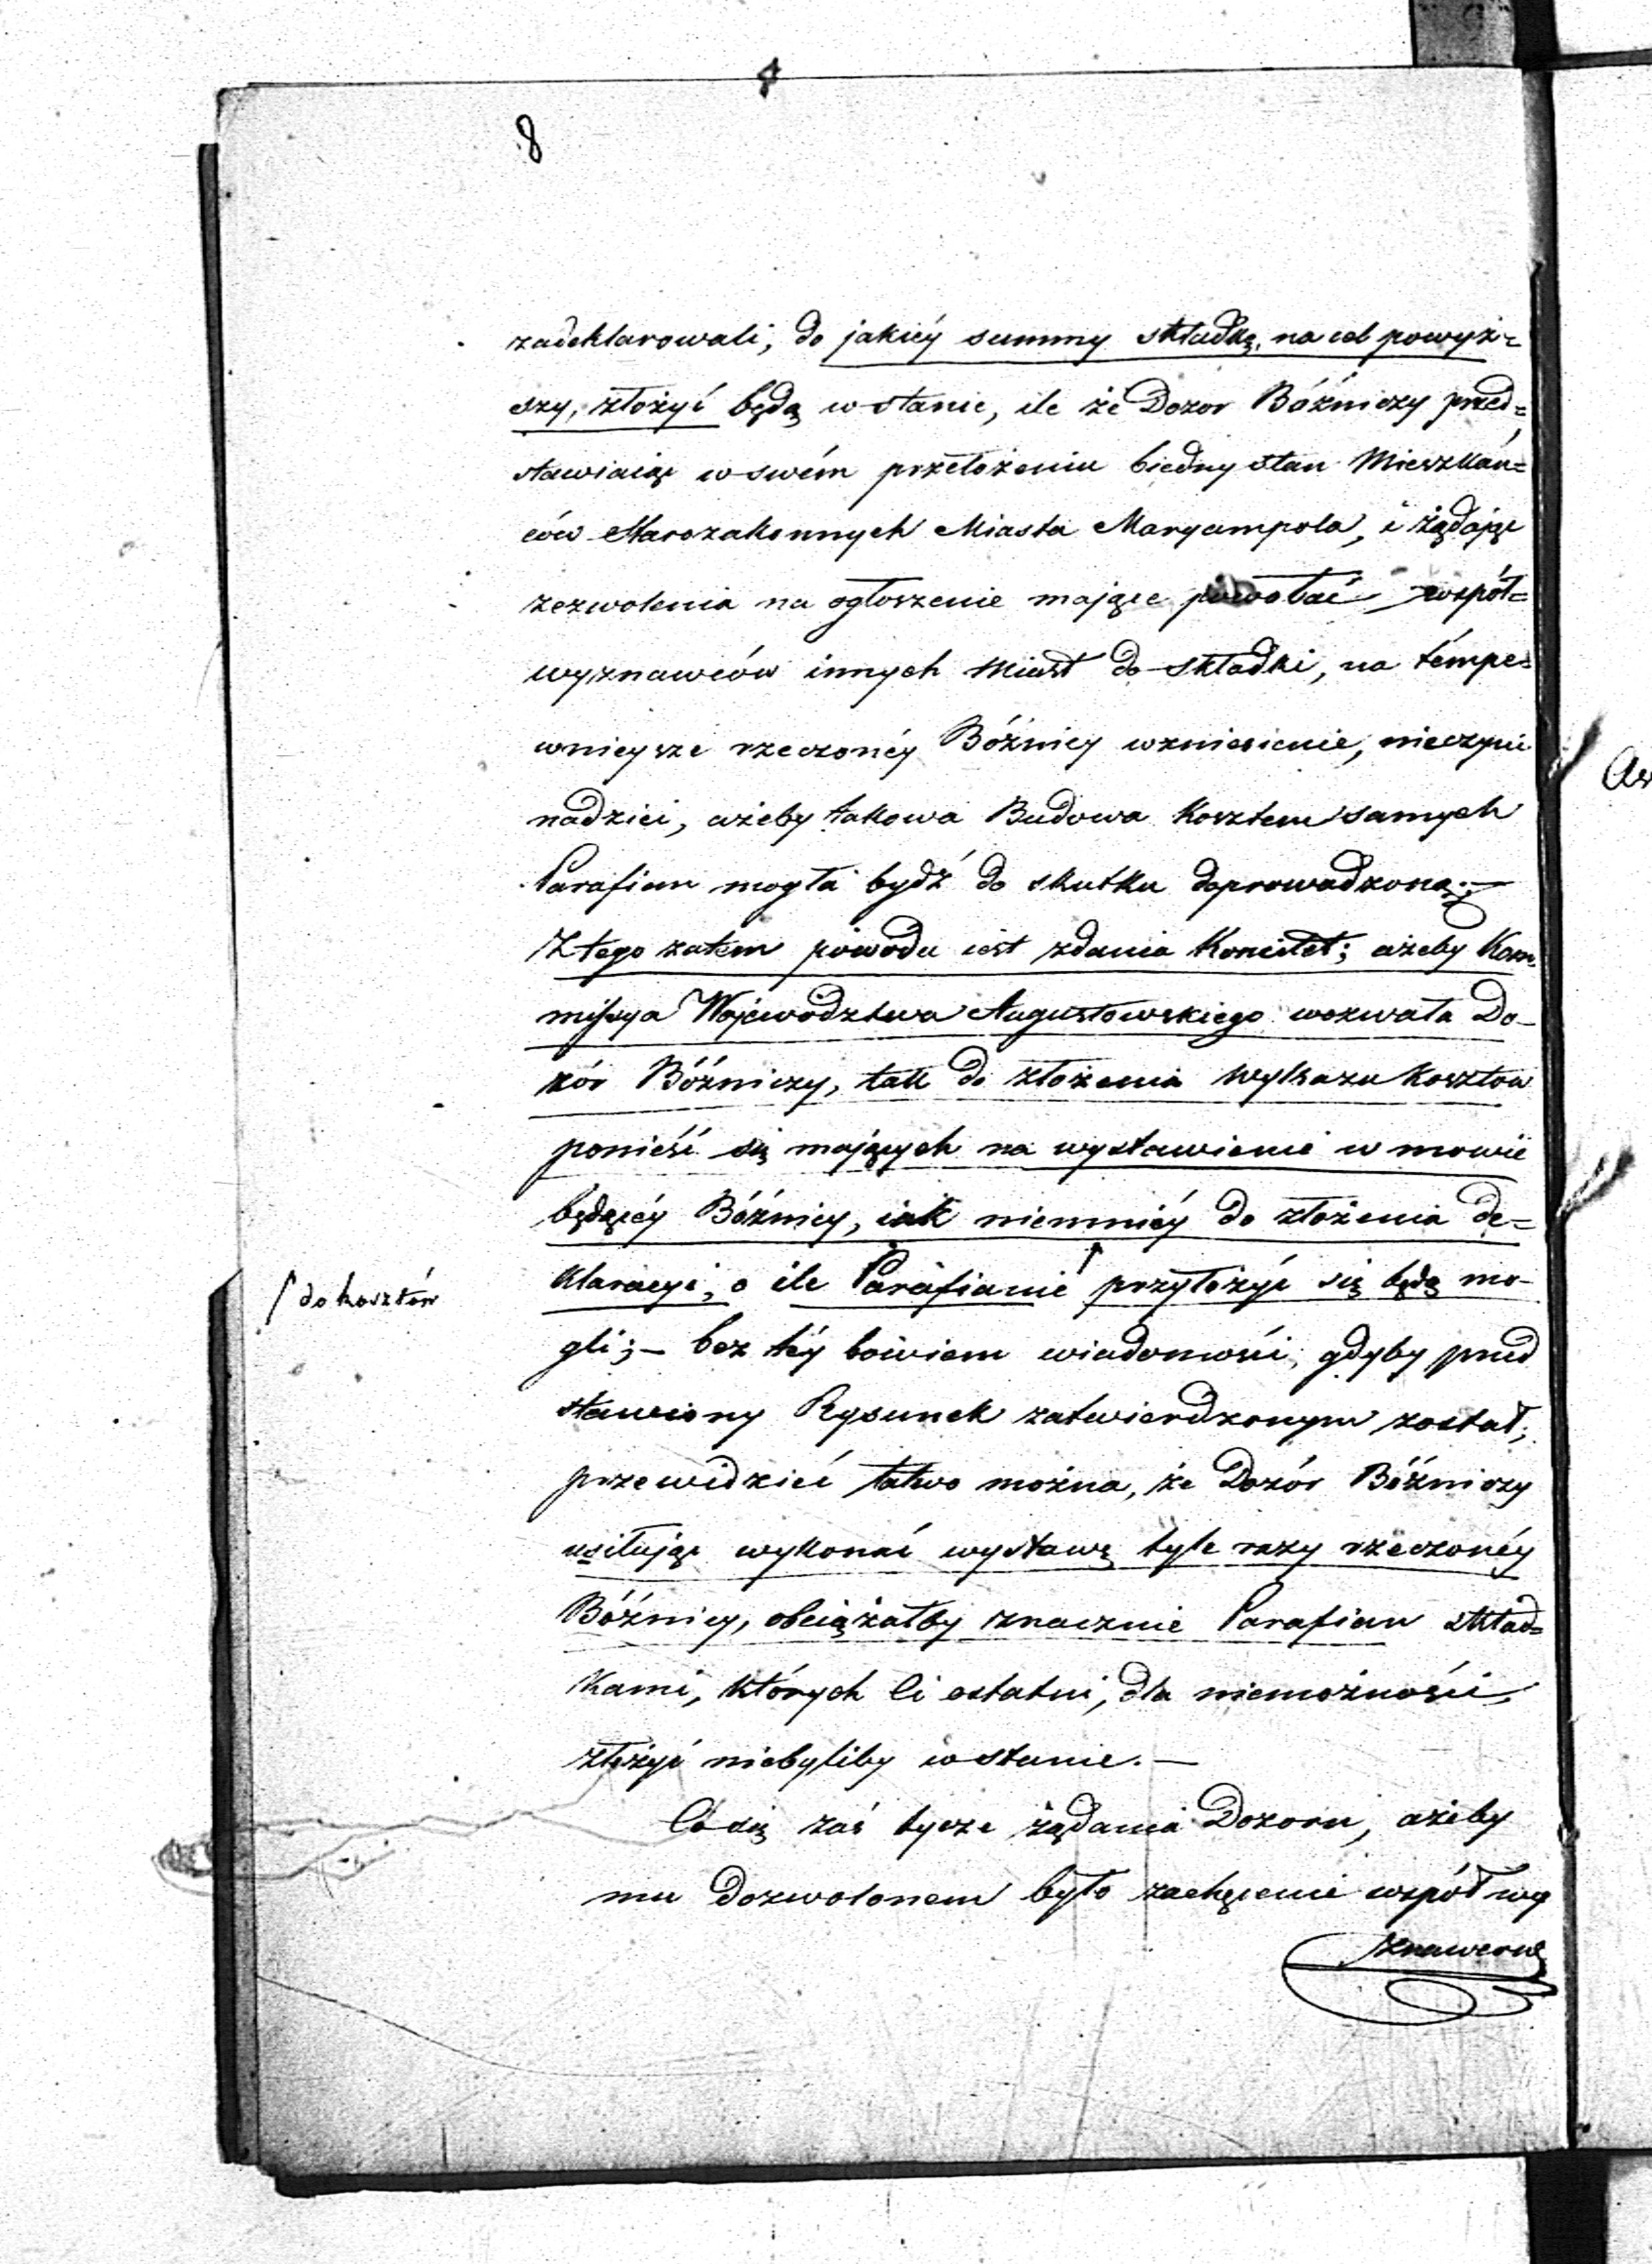 8
zadeklarowali, do jakiéy summy składkę, na cel powyż=
szy, złożyć będą w stanie, ile że Dozor Bóźniczy przed=
stawiaiąc w swém przełożeniu biedny stan Mieszkań=
ców Starozakonnych Miasta Maryampola, i żądając
zezwolenia na ogłoszenie mające powołać współ=
wyznawców innych Miast do składki, na tém pe=
wnieysze rzeczonéy Bóźnicy wzniesienie, nieczyni
nadziei, ażeby takowa Budowa kosztem samych
Parafian mogła bydź do skutku doprowadzoną;—
Z tego zatem powodu iest zdania Komitet; ażeby Kom=
missya Województwa Augustowskiego wezwała Do-
zór Bóźniczy, tak do złożenia wykazu kosztow
ponieść się mających na wystawienie w mowie
będącéy Bóźnicy, iak niemniéy do złożenia de=
klaracyi, o ile Parafianie przyłożyć się będą mo-
/ do kosztów
gli;— bez téy bowiem wiadomości, gdyby przed
stawiony Rysunek zatwierdzonym został,
przewidzieć łatwo można, że Dozór Bóźniczy
usiłując wykonać wystawę tyle razy rzeczonéy
Bóźnicy, obciążałby znacznie Parafian skład=
kami, których Ci ostatni, dla niemożności,
złożyć niebyliby w stanie.—
Co się zaś tycze żądania Dozoru, ażeby
mu dozwolonem było zachęcenie współ wy
znawców